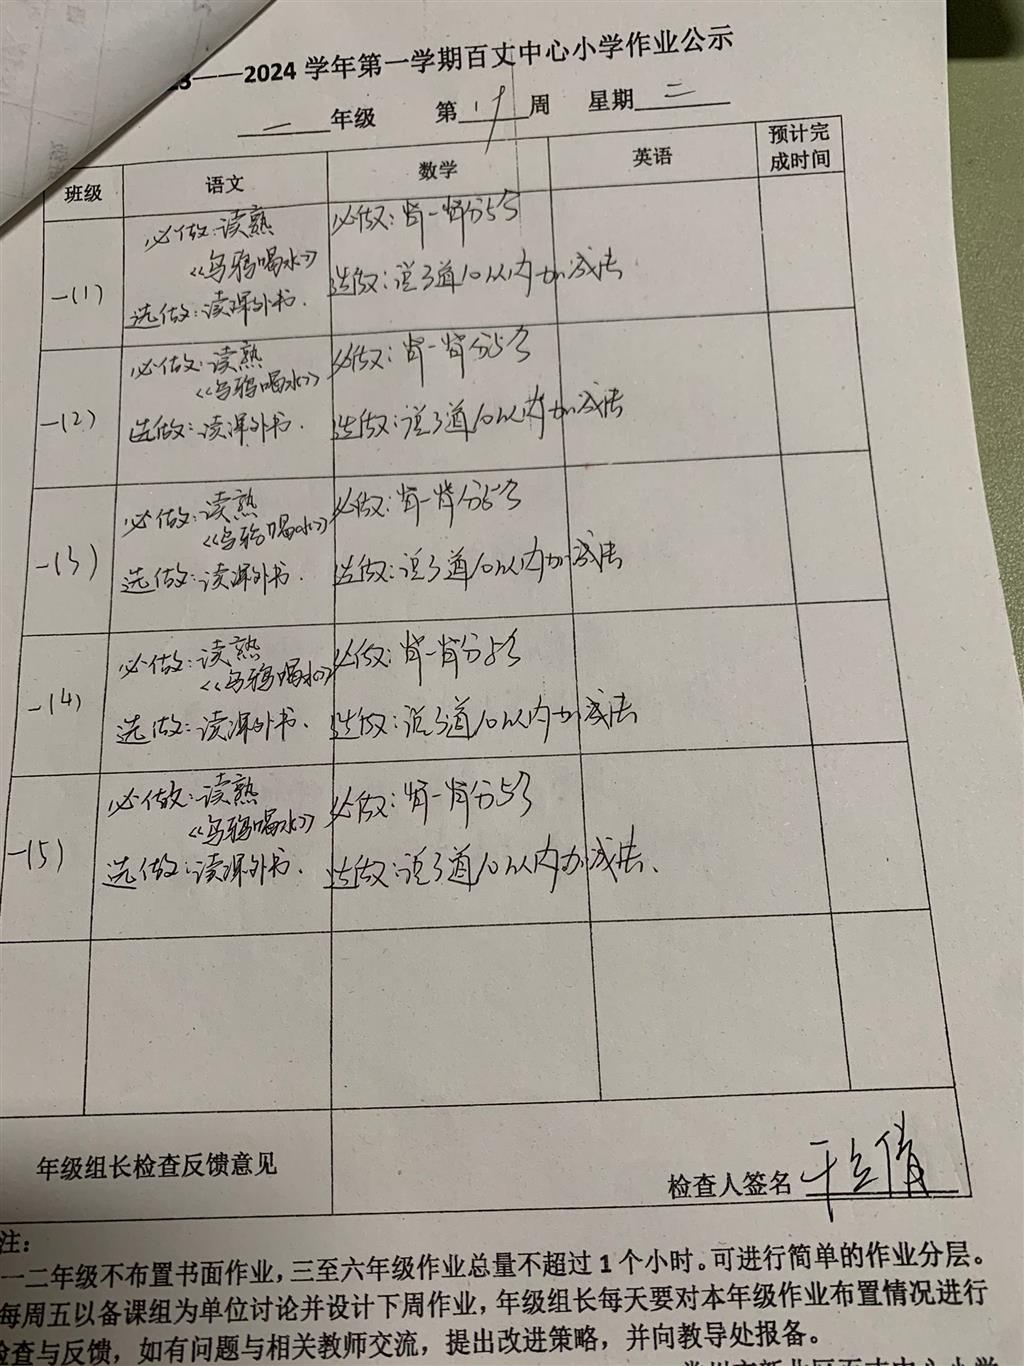 ——2024 学年第一学期百丈中心小学作业公示
一 年级 第 周 星期 三
班级 语文 数学 英语 预计完成时间
一(1) 必做：读熟 必做：背一背分与
《乌鸦喝水》
选做：读课外书. 选做：说 道10以内加减法
一(2) 必做：读熟 必做：背一背分与
《乌鸦喝水》
选做：读课外书. 选做：说 道10以内加减法
一(3) 必做：读熟 必做：背一背分与
《乌鸦喝水》
选做：读课外书. 选做：说 道10以内加减法
一(4) 必做：读熟 必做：背一背分与
《乌鸦喝水》
选做：读课外书. 选做：说 道10以内加减法
一(5) 必做：读熟 必做：背一背分与
《乌鸦喝水》
选做：读课外书. 选做：说 道10以内加减法.
年级组长检查反馈意见
检查人签名
注：
一二年级不布置书面作业，三至六年级作业总量不超过 1 个小时。可进行简单的作业分层。
每周五以备课组为单位讨论并设计下周作业，年级组长每天要对本年级作业布置情况进行
检查与反馈，如有问题与相关教师交流，提出改进策略，并向教导处报备。
常州市新北区百丈中心小学